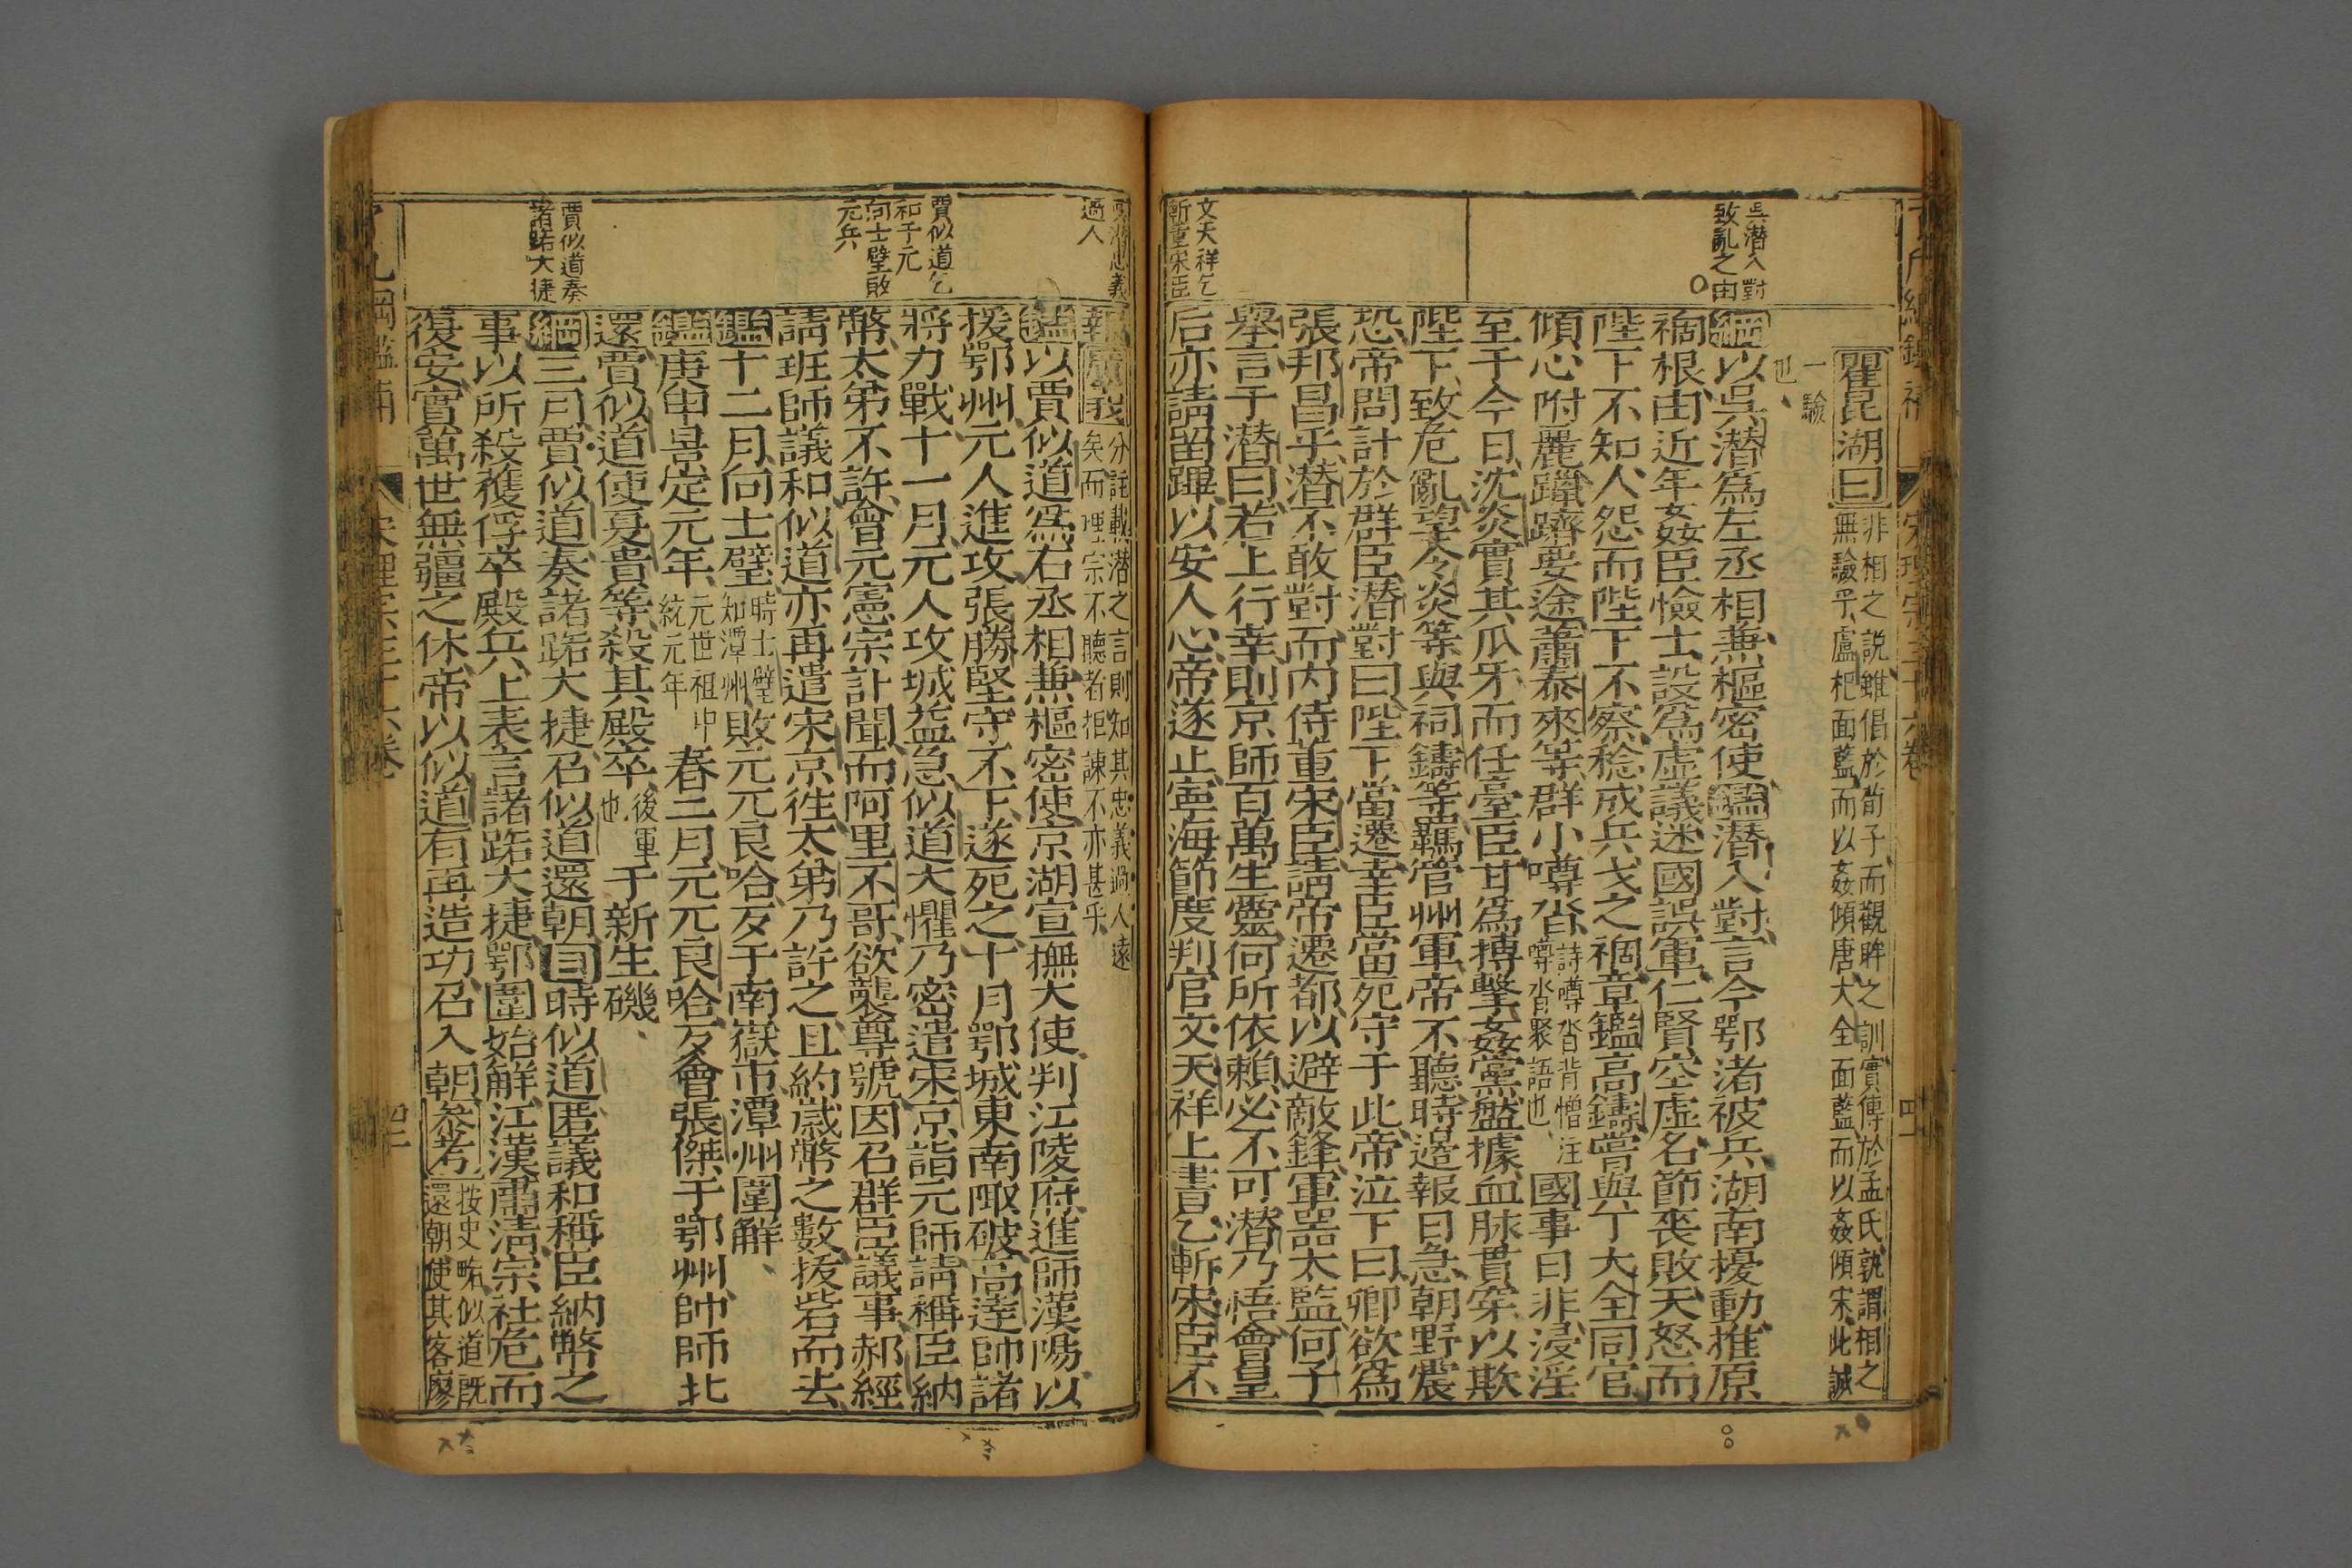 宋理宗三十六卷
四十一
吳潜入對
致亂之由
文天祥乞
斬董宋臣
瞿昆湖曰
非相之說雖倡於荀子而觀眸之訓實傳於孟氏孰謂相之
無驗乎盧杞面藍而以姦傾唐大全面藍而以姦傾宋此誠
一驗
也
綱以吳潜爲左丞相兼樞密使鑑潜入對言今鄂渚被兵湖南擾動推原
禍根由近年姦臣憸士設爲虛議迷國誤軍仁賢空虛名節喪敗天怒而
陛下不知人怨而陛下不察稔成兵戈之禍章鑑高鑄嘗與丁大全同官
傾心附麗躐躋要途蕭泰來等群小噂沓
詩噂沓背憎注
噂沓聚語也
國事日非浸淫
至于今日沈炎實其爪牙而任臺臣甘爲搏擊姦黨盤據血脉貫穿以欺
陛下致危亂望令炎等與祠鑄等羈管州軍帝不聽時邊報日急朝野震
恐帝問計於群臣潜對曰陛下當遷幸臣當死守于此帝泣下曰卿欲爲
張邦昌乎潜不敢對而内侍董宋臣請帝遷都以避敵鋒軍器太監何子
舉言于潜曰若上行幸則京師百萬生靈何所依賴必不可潜乃悟會皇
后亦請留蹕以安人心帝遂止寧海節度判官文天祥上書乞斬宋臣不
過人
賈似道乞
和于元
向士璧敗
元兵
賈似道奏
諸路大捷
報
分註載潜之言則知其忠義過人遠
矣而理宗不聽者拒諫不亦甚乎
鑑以賈似道爲右丞相兼樞密使京湖宣撫大使判江陵府進師漢陽以
援鄂州元人進攻張勝堅守不下遂死之十月鄂城東南陬破高達帥諸
將力戰十一月元人攻城益急似道大懼乃密遣宋京詣元師請稱臣納
幣太弟不許會元憲宗計聞而阿里不哥欲襲尊號因召群臣議事郝經
請班師議和似道亦再遣宋京徃太弟乃許之且約歲幣之數拔砦而去
鑑十二月向士璧
時士璧
知潭州
敗元兀良哈歹于南嶽市潭州圍解
鑑庚申景定元年
元世祖中
統元年
春二月元兀良哈歹會張傑于鄂州帥師北
還賈似道使夏貴等殺其殿卒
後軍
也
于新生磯
綱三月賈似道奏諸路大捷召似道還朝目時似道匿議和稱臣納幣之
事以所殺獲俘卒殿兵上表言諸路大捷鄂圍始解江漢肅清宗社危而
復安實萬世無疆之休帝以似道有再造功召入朝參考
按史略似道既
還朝使其客廖
四十二